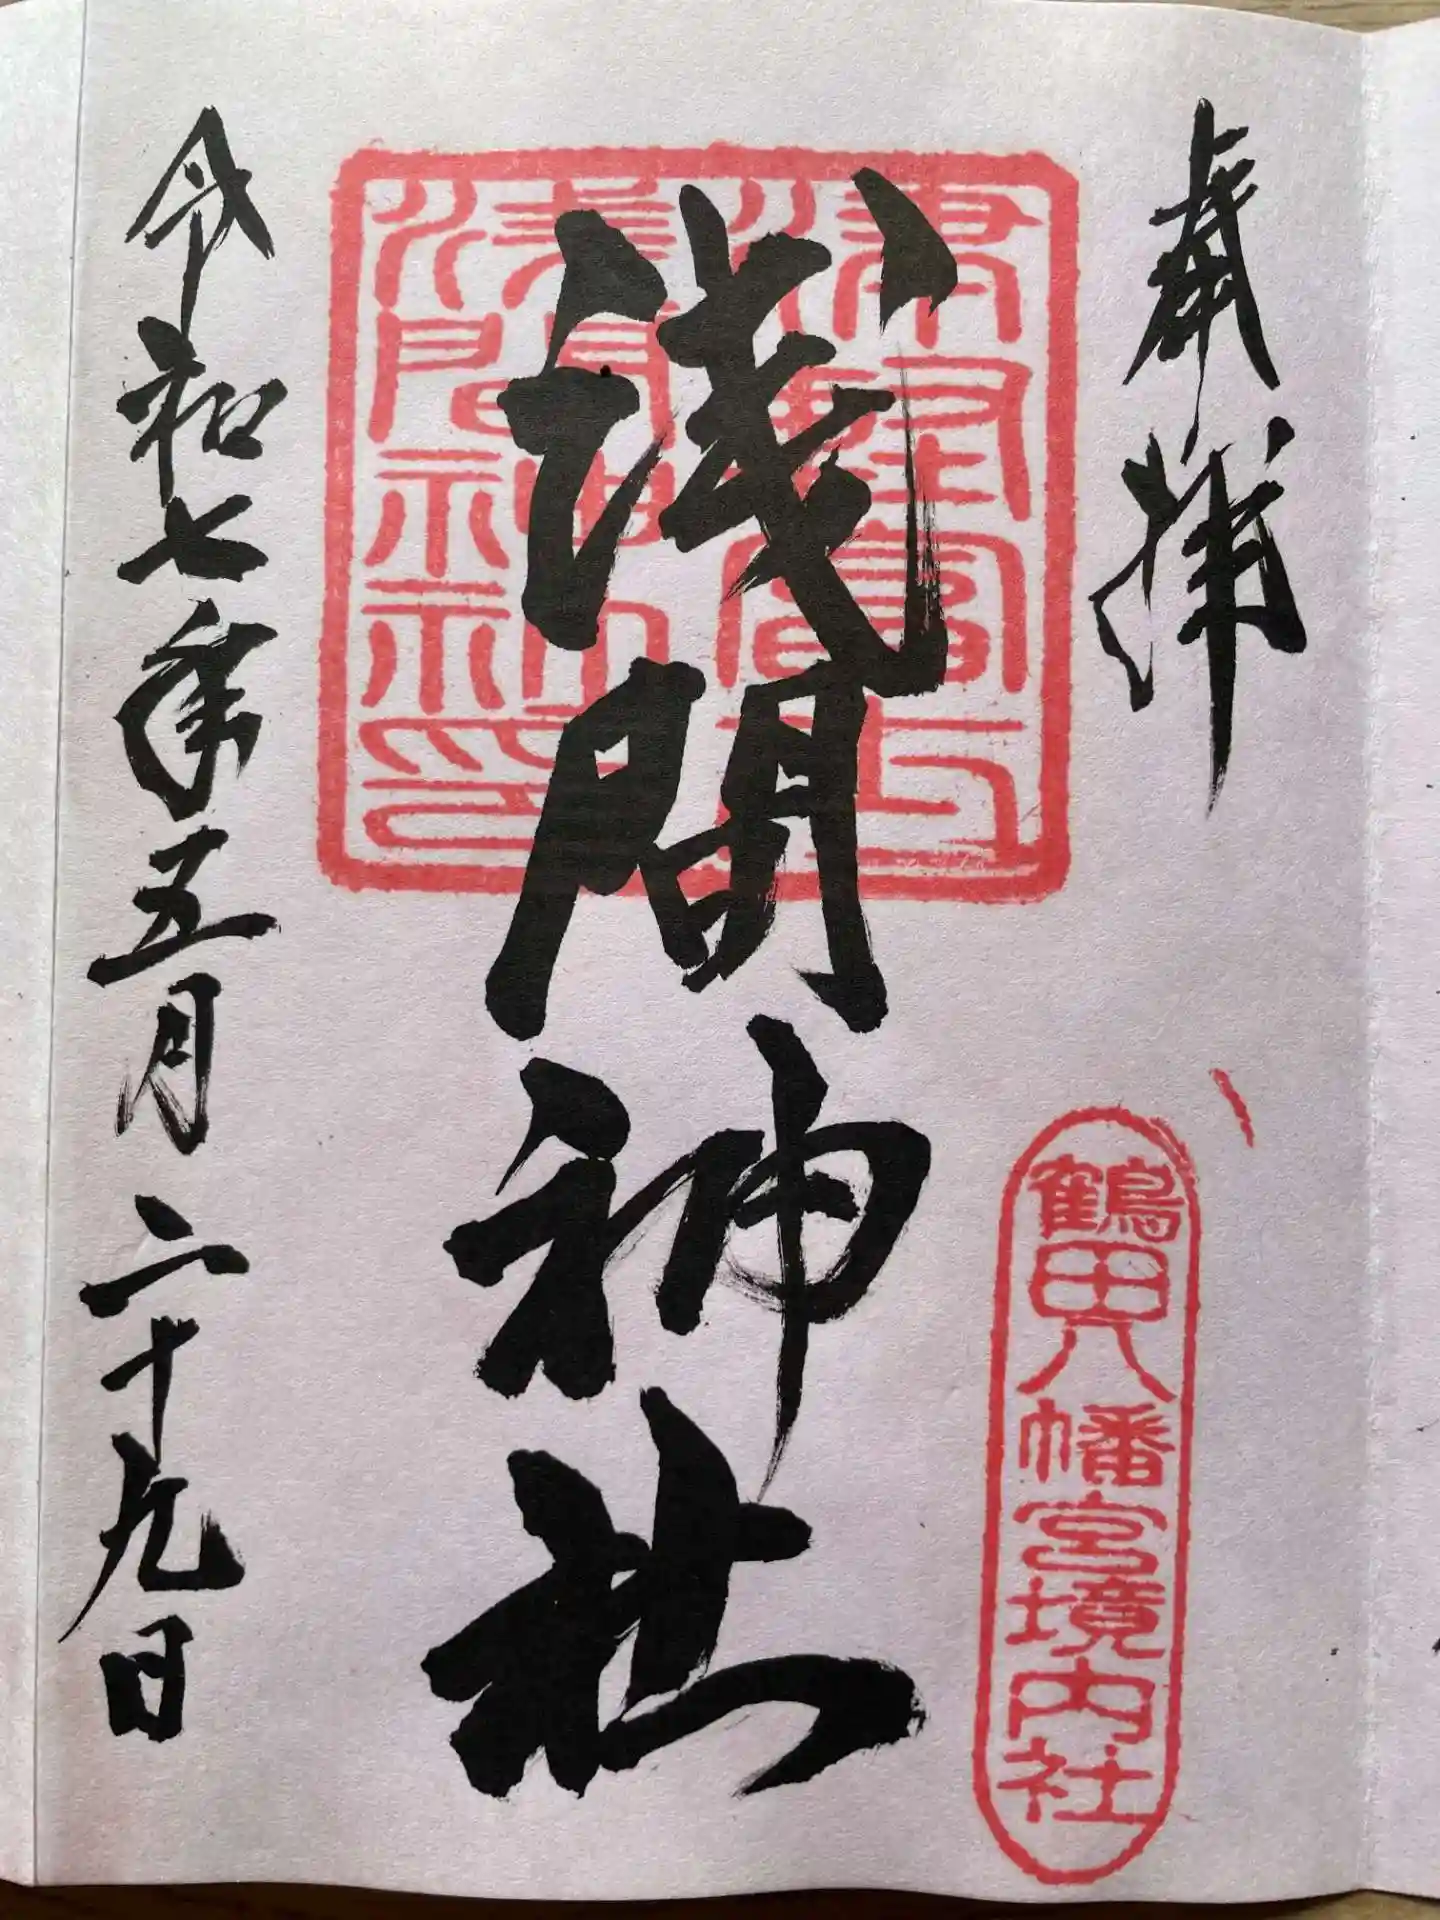 奉拝
鶴田八幡宮境内社
富士
浅間神社印
浅間神社
令和七年五月二十九日